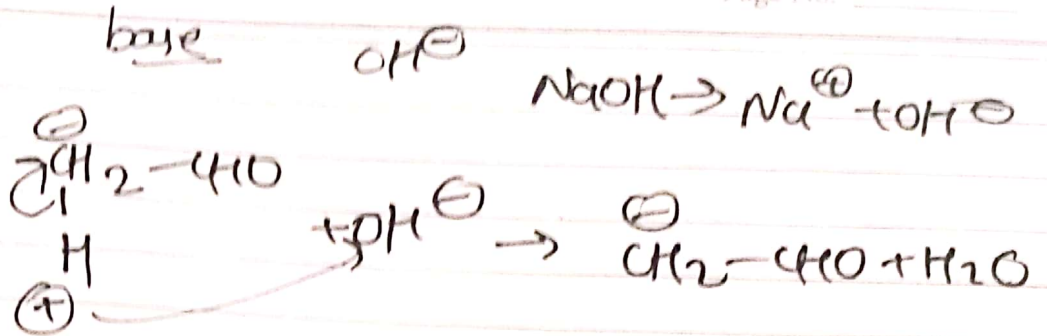 base OH⊖
NaOH → Na⊕ + OH⊖
⊖
CH2-CHO
H
⊕
+ OH⊖ → ⊖CH2-CHO + H2O